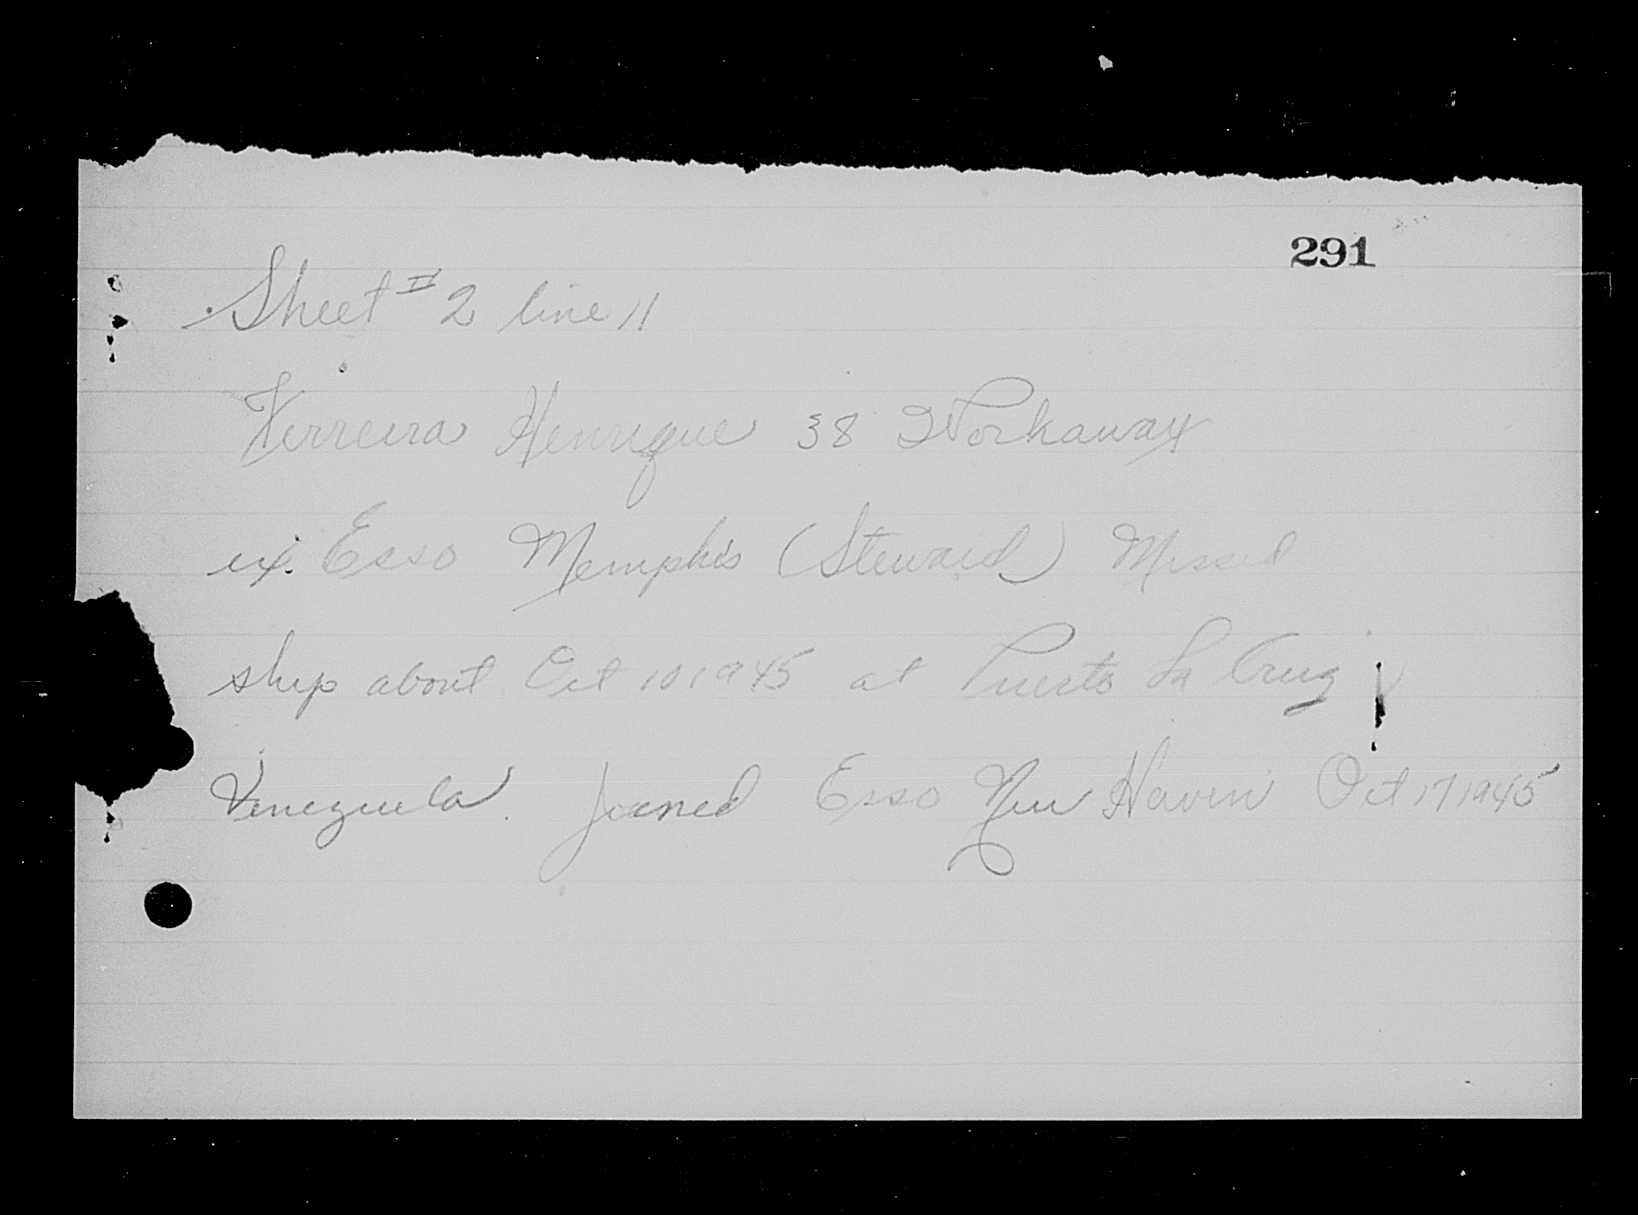 291
Sheet # 2 line 11
Ferreira Henrique 38
ex. Esso Memphis (Steward) Missed
ship about Oct 10 1945 at Puerto La Cruz
Venezuela. Joined Esso New Haven Oct 17 1945